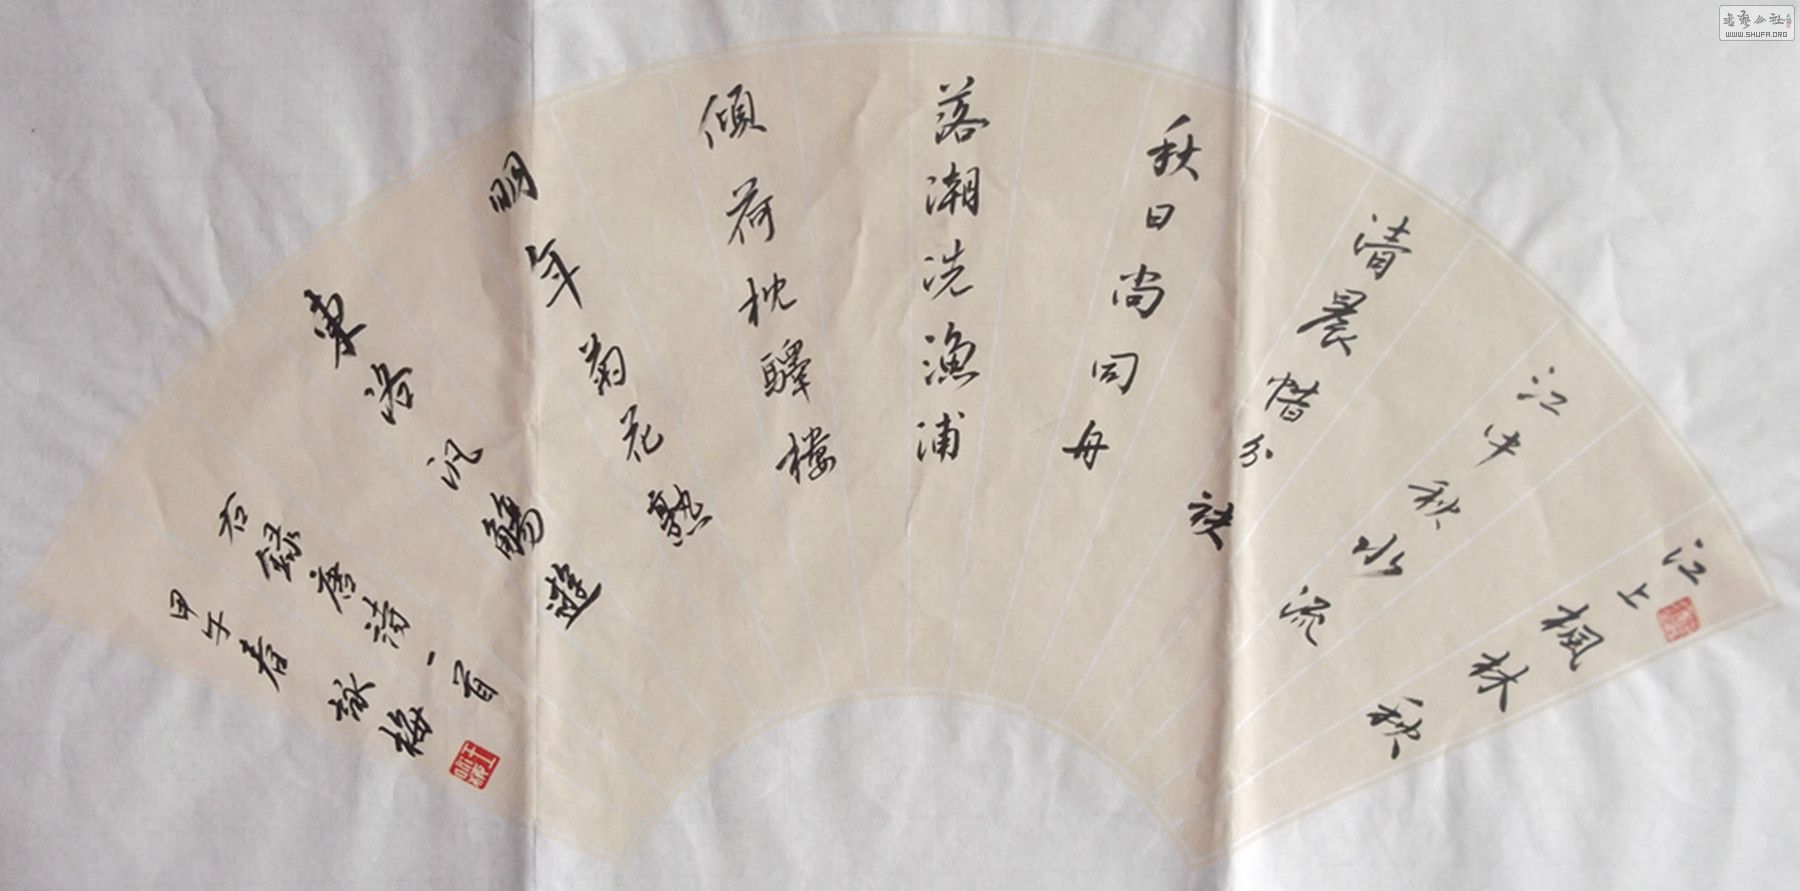 江上楓林秋
江中秋水流
清晨惜分袂
秋日尚同舟
落潮洗漁浦
傾荷枕驛樓
明年菊花熟
東洛汎觴遊
右錄唐詩一首
甲午春 詠梅
書藝公社
WWW.SHUFA.ORG